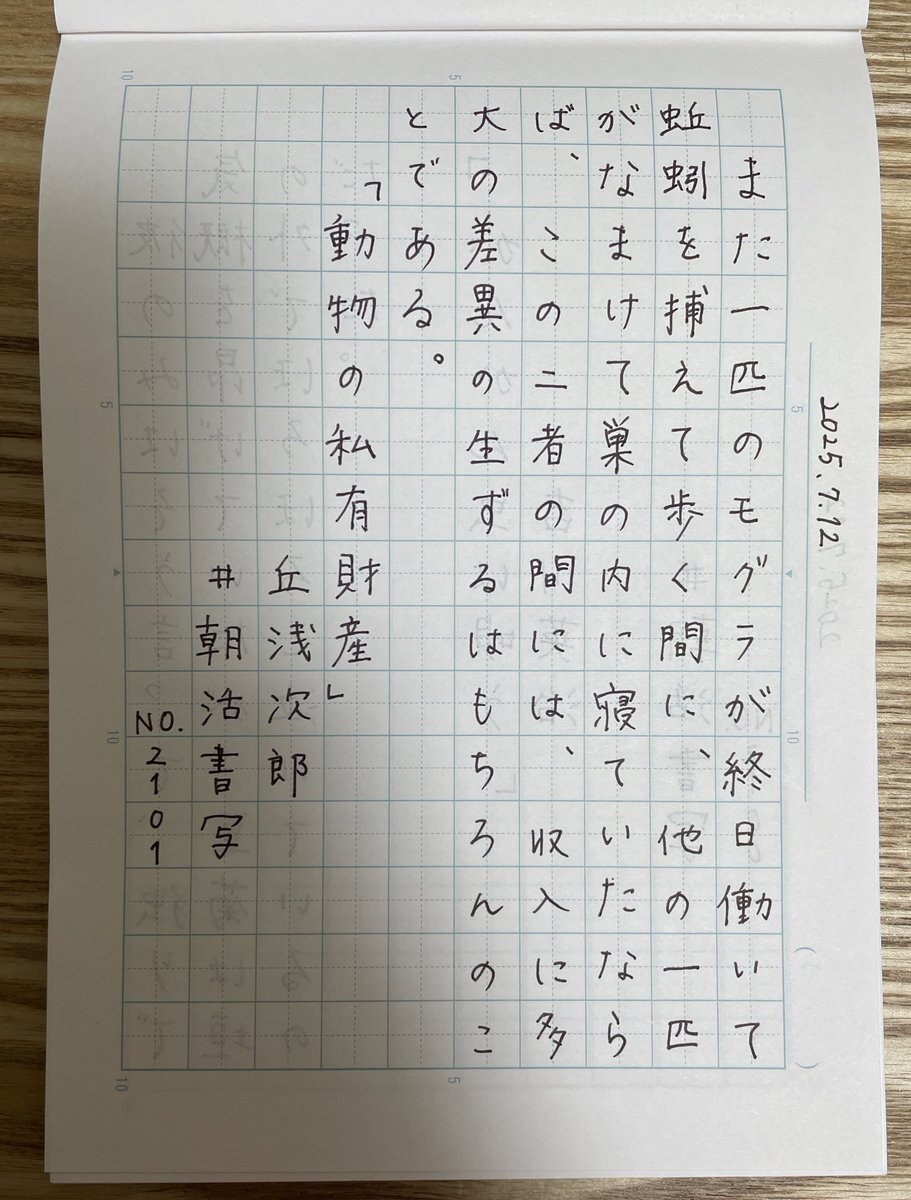 2025.7.12
また一匹のモグラが終日働いて
蚯蚓を捕えて歩く間に、他の一匹
がなまけて巣の内に寝ていたなら
ば、この二者の間には、収入に多
大の差異の生ずるはもちろんのこ
とである。
「動物の私有財産」
丘浅次郎
井朝活書写
NO.2101